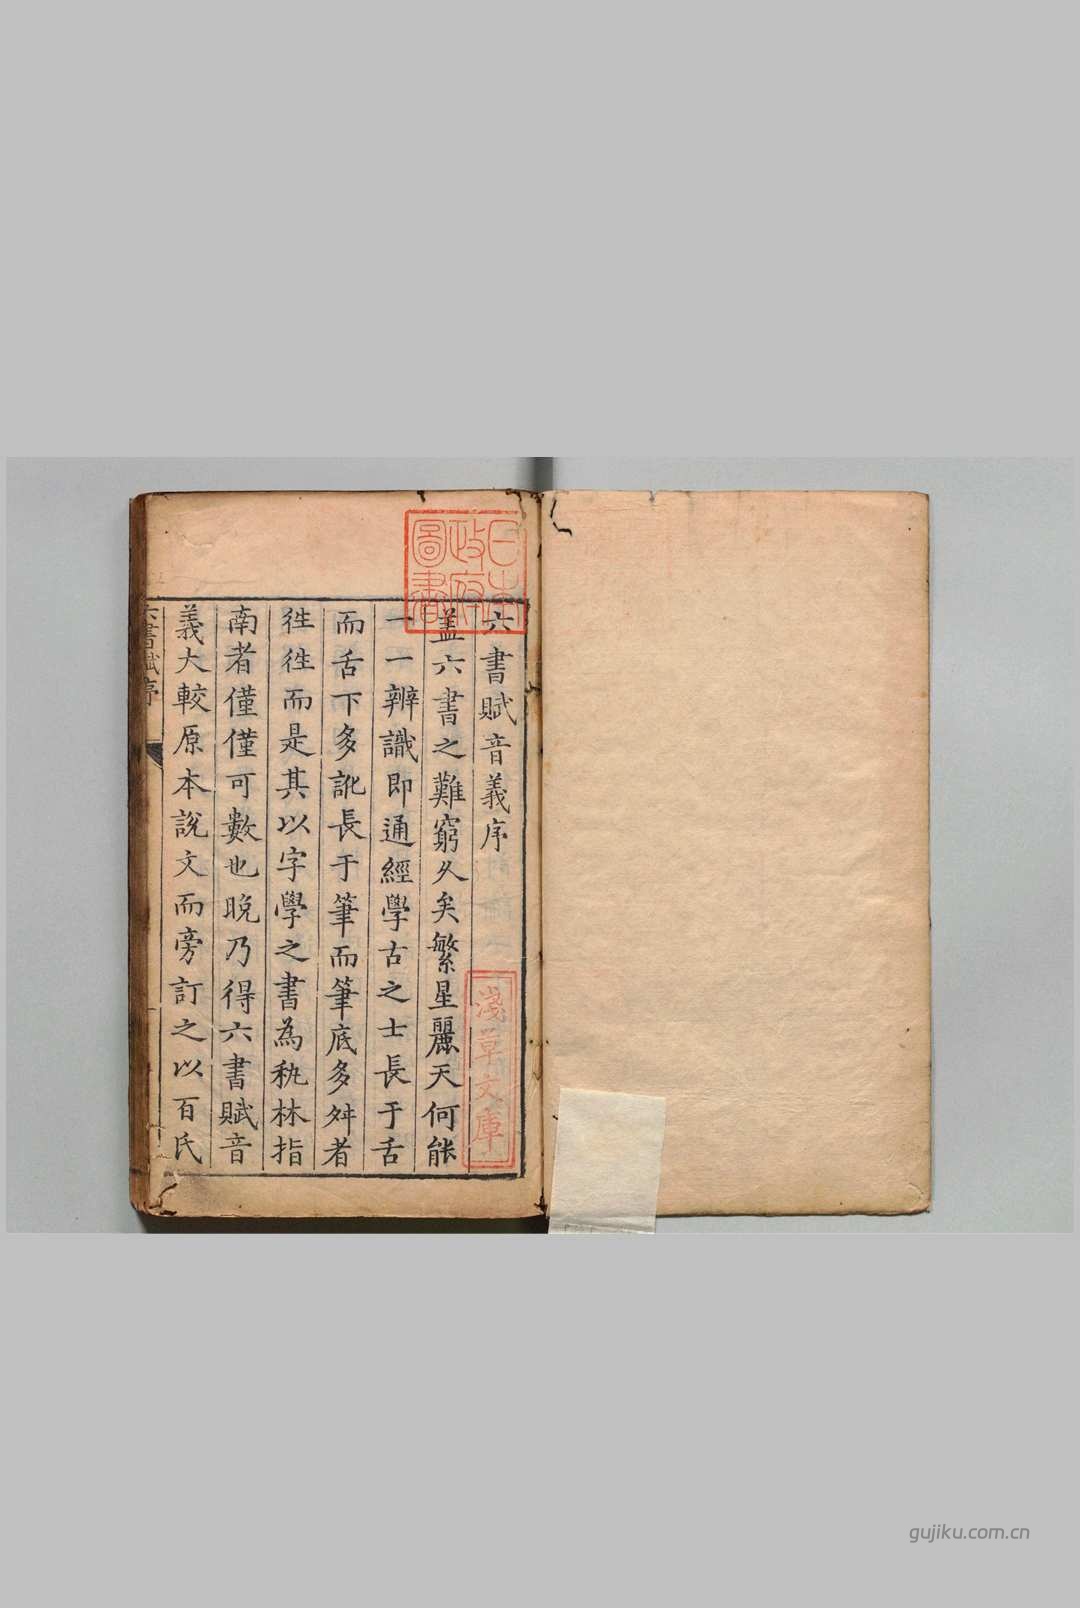 六書賦音義序
盖六書之難窮久矣繁星麗天何能
一一辨識即通經學古之士長于舌
而舌下多訛長于筆而筆底多舛者
徃徃而是其以字學之書為秇林指
南者僅僅可數也晚乃得六書賦音
義大較原本說文而旁訂之以百氏
六書賦序
日本
政府
圖書
淺草文庫
gujiku.com.cn